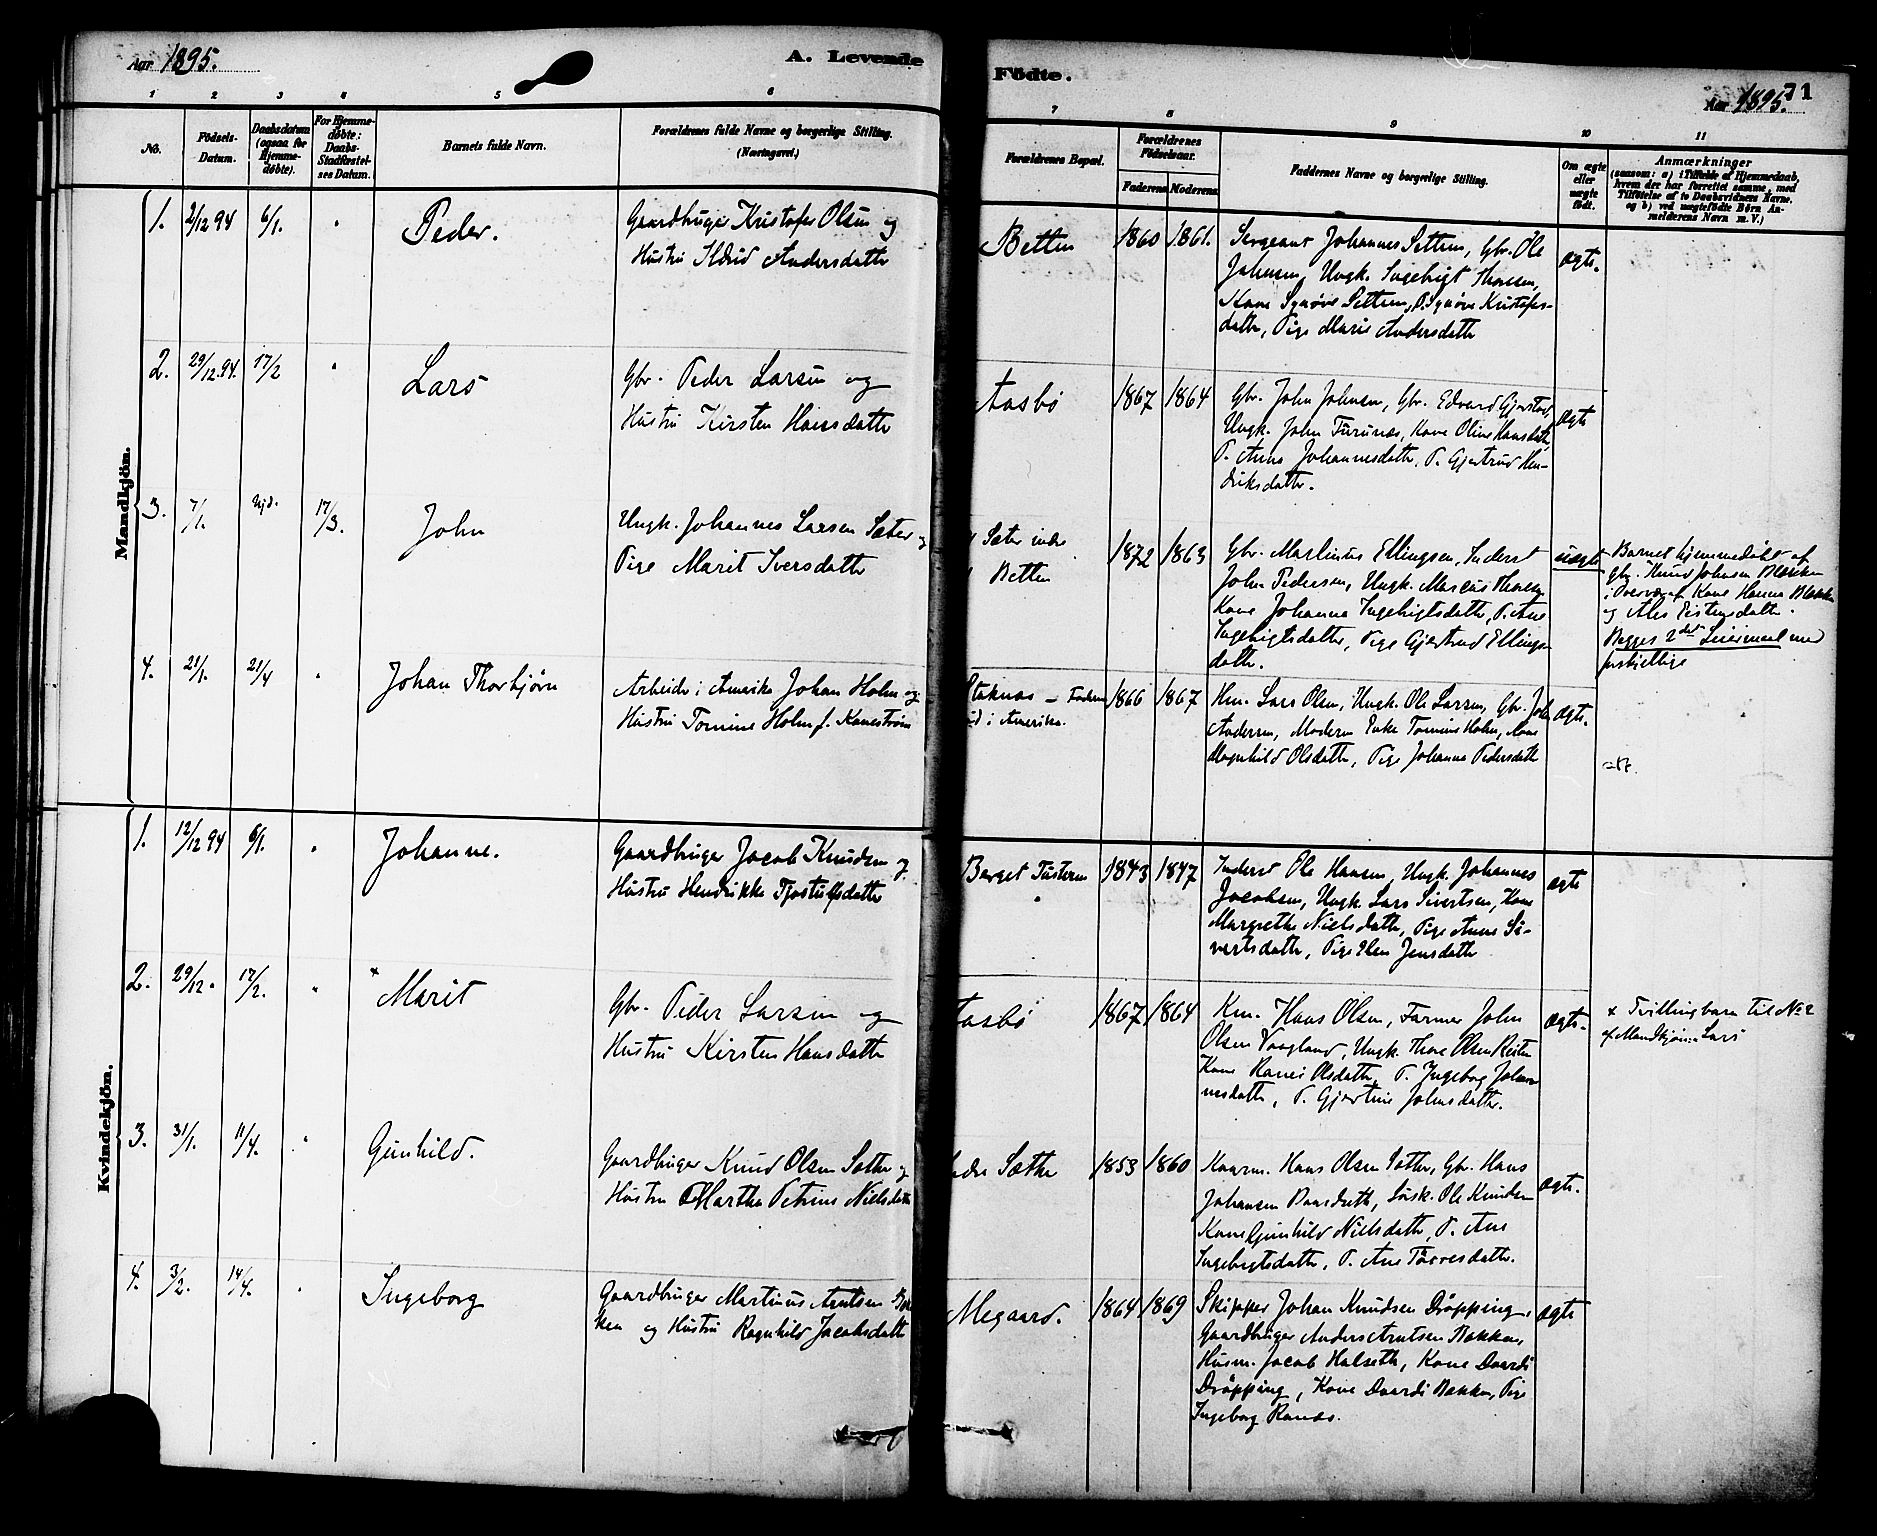 Aar 1895.
A. Levende Fødte.
Aar 1895.
71
1 2 3 4 5 6 7 8 9 10 11
No.
Fødsels-
Datum.
Daabsdatum
(ogsaa for
Hjemme-
døbte).
For Hjemme-
døbte:
Daabs-
Stadfæstel-
ses Datum.
Barnets fulde Navn.
Forældrenes fulde Navne og borgerlige Stilling.
(Næringsvei.)
Forældrenes Bopæl.
Forældrenes
Fødselsaar.
Faderens
Moderens
Faddernes Navne og borgerlige Stilling.
Om ægte
eller
uægte
født.
Anmærkninger
(saasom: a) i Tilfælde af Hjemmedaab,
hvem der har forrettet samme, med
Tilføielse af to Daabsvidners Navne,
og b) ved uægtefødte Børn An-
melderens Navn m. V.)
Mandkjøn.
1. 2/12 94 6/1. "
Peder.
Gaardbruger Kristofer Olsen og
Hustru Ildrid Andersdatter
Betten
1860 1861.
Sergeant Johannes Settem, Gbr. Ole
Johnsen, Ungk. Ingebrigt Thoresen,
Kone Synøve Settem, P. Synøve Kristofers-
datter, Pige Marie Andersdatter
ægte.
2. 29/12.94. 17/2 "
Lars
Gbr. Peder Larsen og
Hustru Kirsten Hansdatter
Aasbø
1867 1864
Gbr. John Johnsen, Gbr. Edvard Gjerstad,
Ungk. John Furunæs, Kone Oline Hansdatter,
P. Anna Johannesdatter, P. Gjertrud Hen-
driksdatter.
ægte
3. 7/1. Hjd. 17/3.
John
Ungk. Johannes Larsen Sæter og
Pige Marit Iversdatter
Sæter indre
Betten
1872 1863
Gbr. Martinus Ellingsen, Inderst
John Pedersen, Ungk. Marcus Thoresen
Kone Johanna Ingebrigtsdatter, P. Ane
Ingebrigtsdatter, Pige Gjertrud Ellings-
datter.
uægte
Barnet hjemmedøbt af
Gbr. Knud Johnsen Bakken
i Overvær af Kone Hanna Bakken
og Ales Eistensdatter.
Begges 2det Leiermaal med
forskjellige
4. 21/1. 21/4 "
Johan Thorbjørn
Arbeider i Amerika Johan Holm og
Hustru Tomine Holm f. Kanestrøm
Staknæs – Faderen
i Amerika.
1866 1867
Hm. Lars Olsen, Ungk. Ole Larsen, Gbr. John
Andersen, Moderen Enke Tomine Holm, Kone
Magnhild Olsdatter, Pige Johanna Pedersdatter
ægte.
Kvindekjøn.
1. 12/12 94 6/1. "
Johanne.
Gaardbruger Jacob Knudsen og
Hustru Hendrikke Tjostulfsdatter
Berget Tusteren
"
1843 1847
Inderst Ole Hansen, Ungk. Johannes
Jacobsen, Ungk. Lars Sivertsen, Kone
Margrethe Nielsdatter, Pige Anne Si-
vertsdatter, Pige Elen Jensdatter
ægte
2. 29/12. 17/2. "
x Marit
Gbr. Peder Larsen og
Hustru Kirsten Hansdatter
Aasbø
1867 1864
Km. Hans Olsen, Farmer John
Olsen Vaagland, Ungk. Thore Olsen Reiten
Kone Ranei Olsdatter, P. Ingeborg Johan-
nesdatter, P. Gjertine Johnsdatter.
ægte.
x Tvillingbarn til No 2
af Mandkjøn: Lars
3. 31/1. 11/4. "
Gunhild.
Gaardbruger Knud Olsen Sæther og
Hustru Martha Petrine Nielsdatter
Indre Sæther
1853 1860
Kaarm. Hans Olsen Sæther, Gbr. Hans
Johansen Baasdreth, Ungk. Ole Knudsen
Kone Gunhild Nielsdatter, P. Ane
Ingebrigtsdatter, P. Ane Torresdatter.
ægte.
4. 3/2. 14/4. "
Ingeborg
Gaardbruger Martinus Arntsen Bak-
ken og Hustru Ragnhild Jacobsdatter
Megaard.
1864 1869
Skipper Johan Knudsen Drøpping,
Gaardbruger Anders Arntsen Bakken,
Husm. Jacob Halseth, Kone Daardi
Drøpping, Kone Daardi Bakken, Pige
Ingeborg Ranæs.
ægte